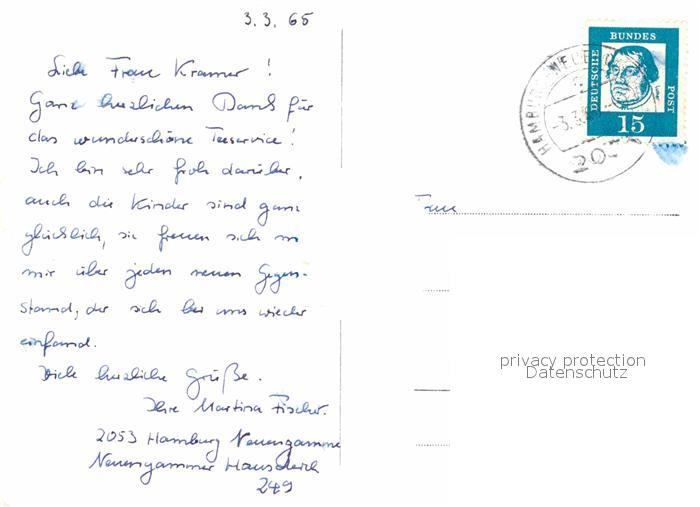 3. 3. 65
Liebe Frau Kramer!
Ganz herzlichen Dank für
das wunderschöne Teeservice!
Ich bin sehr froh darüber,
auch die Kinder sind ganz
glücklich, sie freuen sich m
mir über jeden neuen Gegen-
stand, der sich bei uns wieder
einfand.
Viele herzliche Grüße.
Ihre Martina Fischer.
2053 Hamburg Neuengamme
Neuengammer Hausdeich
249
DEUTSCHE BUNDES POST
15
HAMBURG-NEUE
-3.3.
205
Frau
privacy protection
Datenschutz